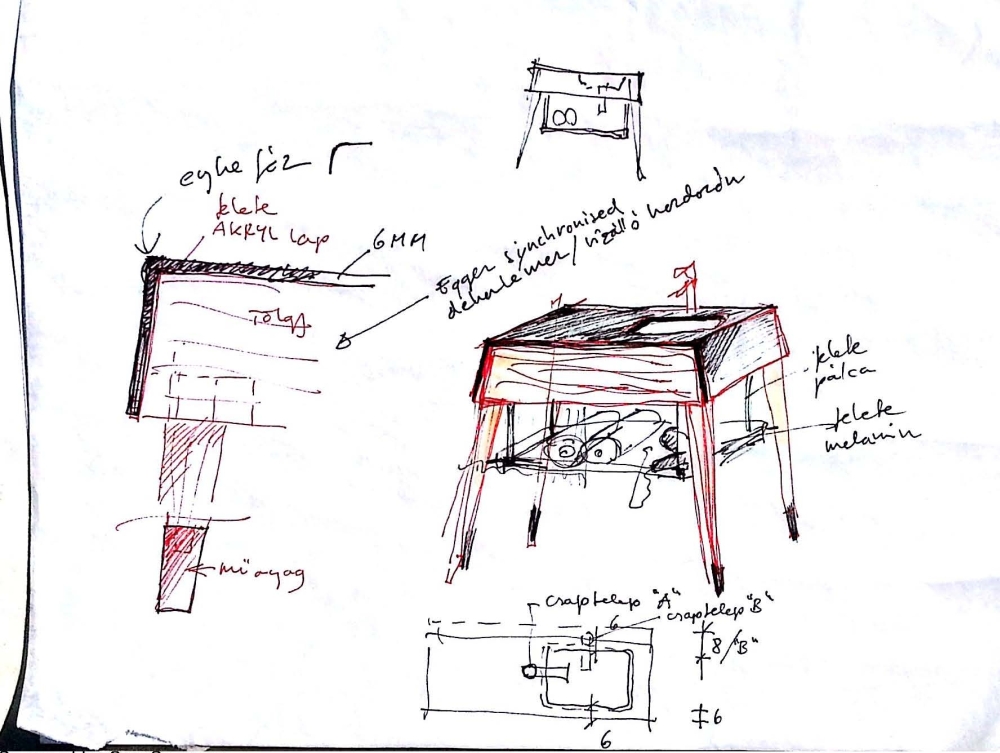 enyhe fóz
fekete
AKRYL lap
6MM
Egger synchronised
dekorlemez / vízálló hordozón
TölgyA
fekete
pálca
fekete
melamin
műanyag
csaptelep "A"
csaptelep "B"
6
8/"B"
6
6